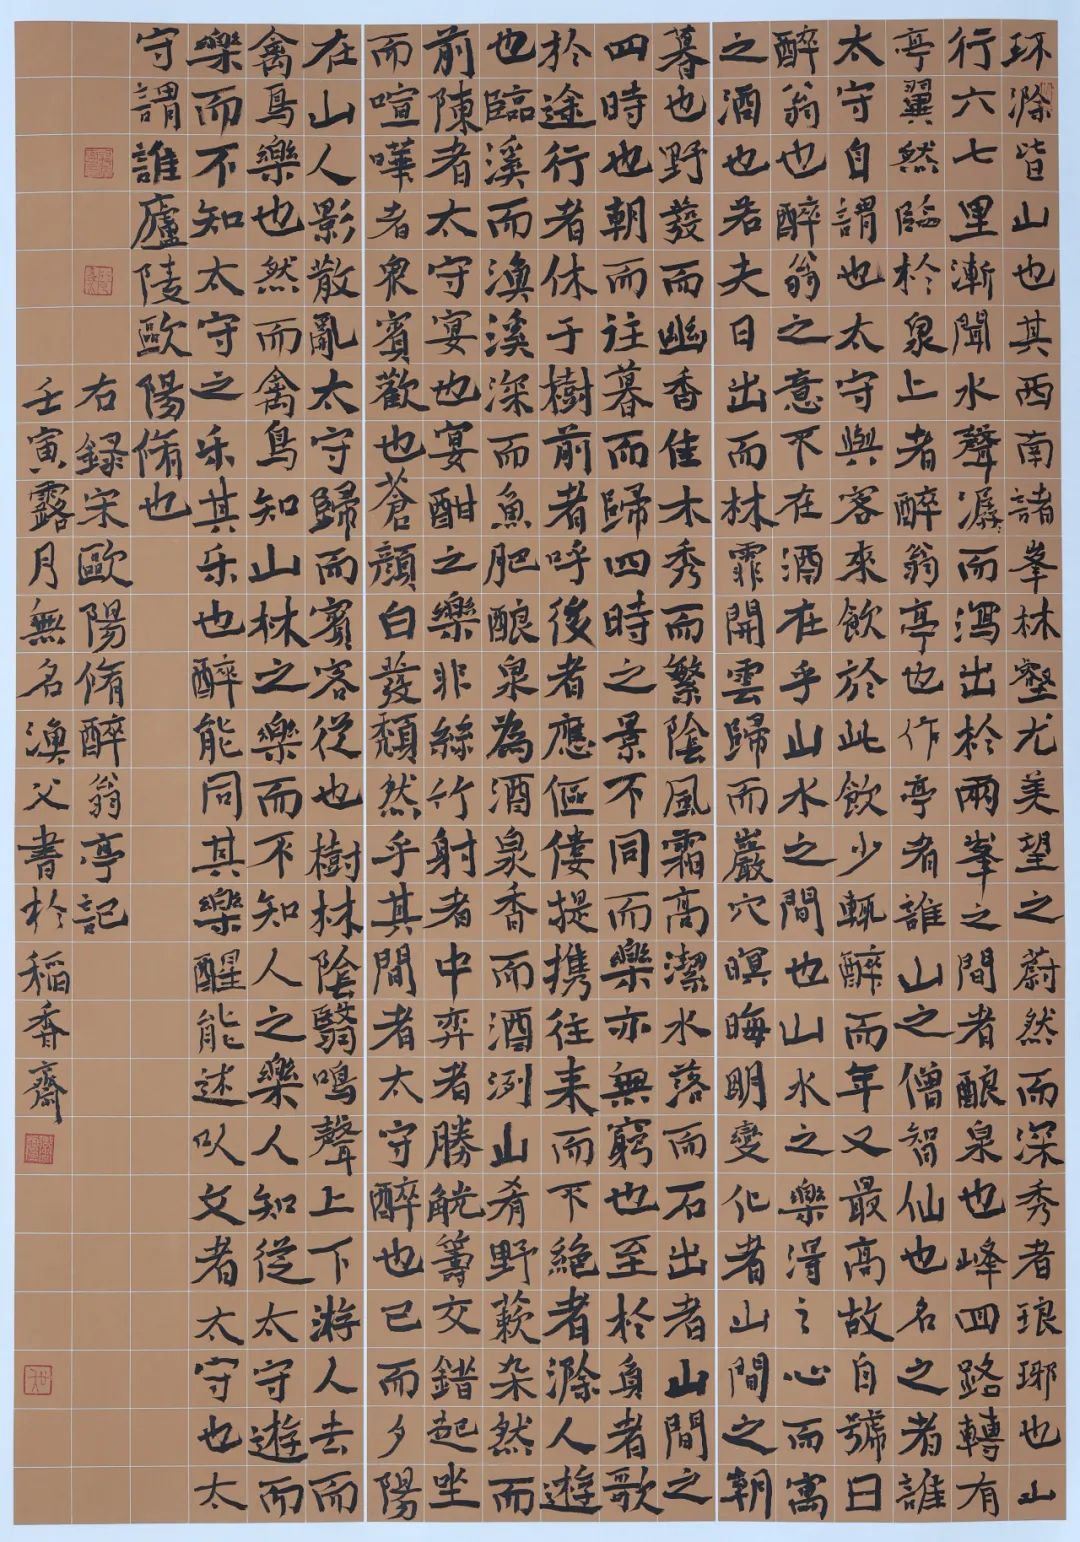 环滁皆山也其西南諸峯林壑尤美望之蔚然而深秀者琅琊也山
行六七里漸聞水聲潺而瀉出於兩峯之間者酿泉也峰四路轉有
亭翼然臨於泉上者醉翁亭也作亭者誰山之僧智仙也名之者誰
太守自謂也太守與客來飲於此飲少輒醉而年又最高故自號曰
醉翁也醉翁之意不在酒在乎山水之間也山水之樂得之心而寓
之酒也若夫日出而林霏開雲歸而巖穴暝晦明變化者山間之朝
暮也野發而幽香佳木秀而繁陰風霜高潔水落而石出者山間之
四時也朝而往暮而歸四時之景不同而樂亦無窮也至於負者歌
於途行者休于樹前者呼後者應傴僂提携往来而不絕者滁人遊
也臨溪而漁溪深而魚肥酿泉為酒泉香而酒洌山肴野蔌杂然而
前陳者太守宴也宴酣之樂非絲竹射者中弈者勝觥籌交錯起坐
而喧嘩者衆賓歡也蒼顏白發頹然乎其間者太守醉也已而夕陽
在山人影散亂太守歸而賓客從也樹林陰翳鳴聲上下游人去而
禽鳥樂也然而禽鳥知山林之樂而不知人之樂人知從太守遊而
樂而不知太守之乐其乐也醉能同其樂醒能述以文者太守也太
守謂誰廬陵歐陽脩也
右録宋歐陽脩醉翁亭記
壬寅露月無名漁父書於稻香齋